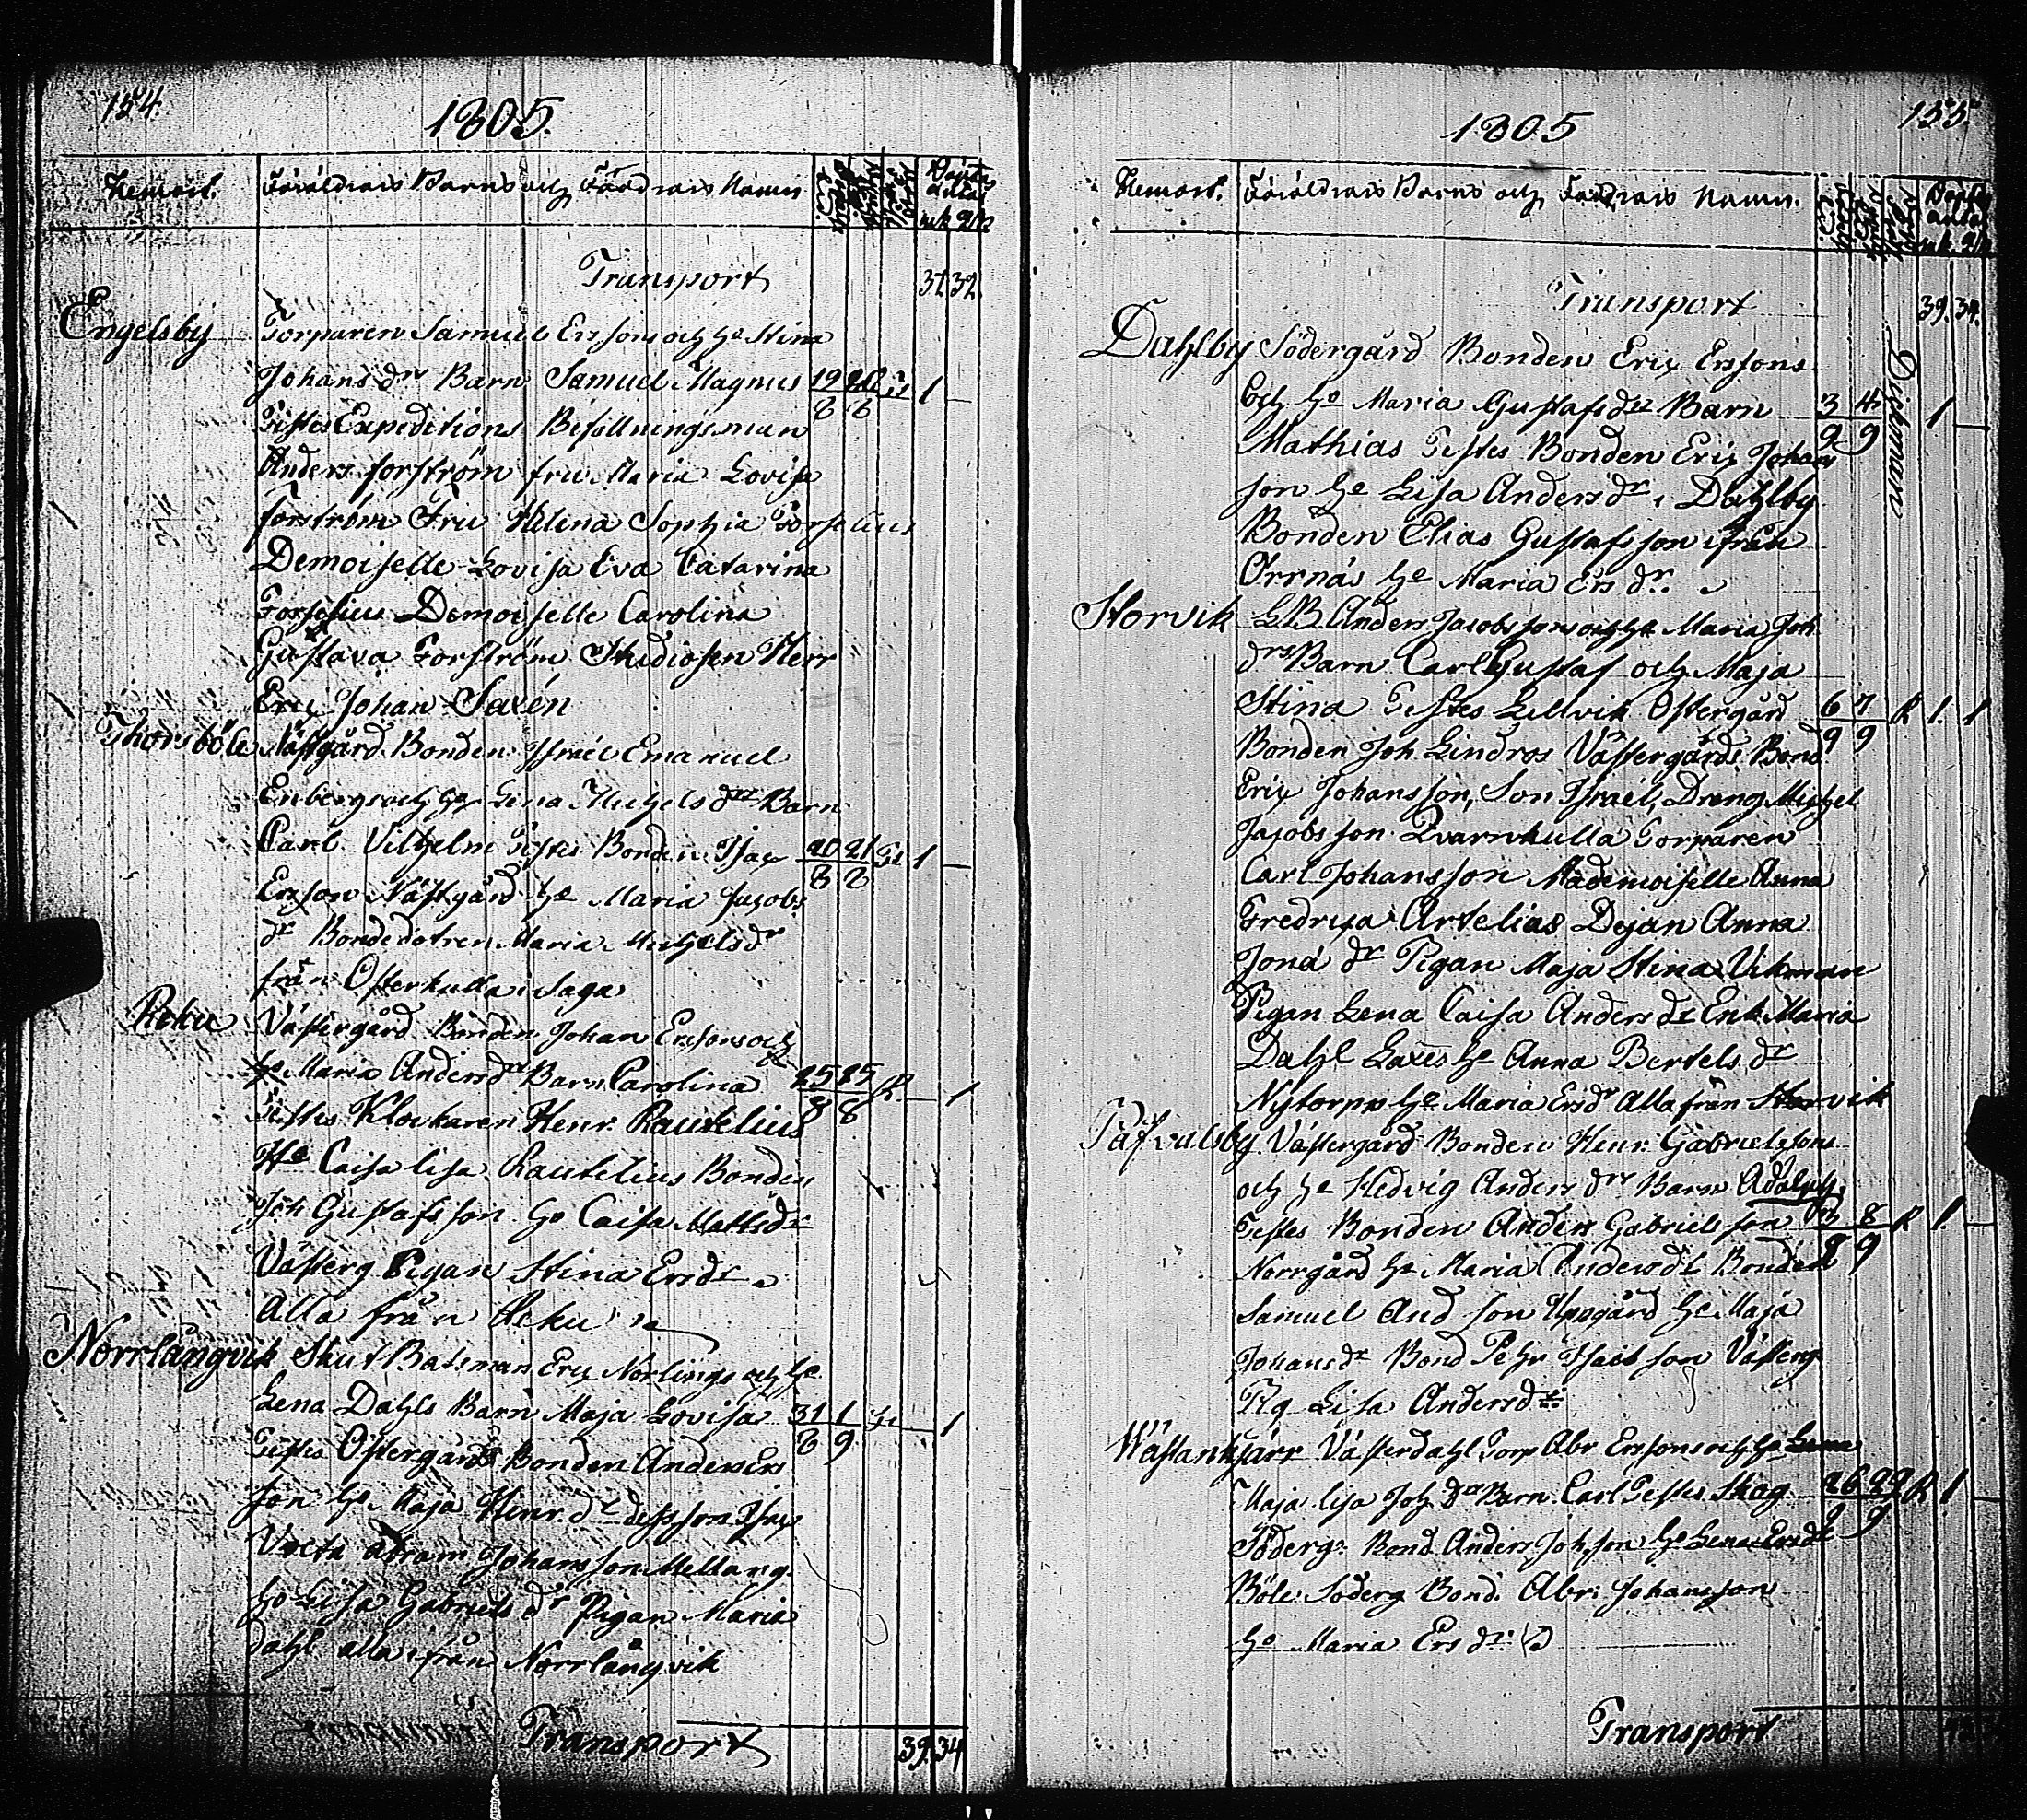 154.
1805.
Hemort. Föräldrars Barns och Faddrars Namn
Transport 37 32
Engelsby Torparen Samuel Erssons och he Stina
Johans dr Barn Samuel Magnus 19 20 1
8 8
Testes Expeditions Befallningsman
Anders forström fru Maria Lovisa
Forström Fru Helena Sophia Forselius
Demoiselle Lovisa Eva Catarina
Forselius Demoiselle Carolina
Gustava Forström Studiosen Herr
Eric Johan Saxén
Thorsböle Nästgård Bonden Israel Emanuel
Enbergs och he Lena Michels drs Barn
Carl Vilhelm Testes Bonden Isac 20 21 1
8 8
Ersson Nästgård he Maria Jacobs
dr Bondedotren Maria Michelsdr
från Österkulla i Saga
Reku Västergård Bonden Johan Erssons och
he Maria Andersdrs Barn Carolina 25 25 R 1
8 8
Testes Klockaren Henr. Rautelius
He Caisa Lisa Rautelius Bonden
Joh Gustafsson he Caisa Mattsdr
Västerg Pigan Stina Ersdr
Alla från Reku
Norrlångvik Skut Batsman Eric Norlings och he
Lena Dahls Barn Maja Lovisa 31 1 1
8 9
Testes Östergårds Bonden Anders Ers
son he Maja Henr. dr dess son Isac
Abram Johansson Mellang.
he Lisa Gabriels dr Pigan Maria
Dahl alla ifrån Norrlångvik
Transport 39 34
155
1805
Hemort. Föräldrars Barns och Faddrars Namn.
Transport 39. 34.
Dahlby Södergård Bonden Eric Erssons
Och he Maria Gustafs drs Barn 3 4 1
9 9
Dickman
Mathias Testes Bonden Eric Johans
son he Lisa Anders dr i Dahlby
Bonden Elias Gustafsson ifrån
Orrnäs he Maria Ers dr.
Storvik L.B. Anders Jacobssons och he Maria Joh
drs Barn Carl Gustaf och Maja
Stina Testes Lillvik Östergård 6 7 R 1 1
9 9
Bonden Joh Lindros Västergårds Bond
Eric Johansson, Son Israel, Dreng Michel
Jacobsson Qvarnkulla Torparen
Carl Johansson Mademoiselle Anna
Fredrica Artelias Dejan Anna
Jona dr Pigan Maja Stina Vikman
Pigan Lena Caisa Anders dr Enk Maria
Dahl Laxes he Anna Bertels dr
Nytorpp he Maria Ersdr Alla från Storvik
Västergård Bonden Henr. Gabrielssons
och he Hedvig Anders drs Barn Adolph
Testes Bonden Anders Gabrielsson 8 R 1
8 9
Norrgård he Maria Andersdr Bonden
Samuel And son Uppgård he Maja
Johansdr Bond Pehr Isacsson Västerg
Pig Lisa Andersdr
Wästankjärr Västerdahl Torp Abr Erssons och he
Maja Lisa Joh drs Barn Carl Testes Skog 26 29 R 1
9 9
Söderg. Bond Anders Joh.son he Lena Ersdr
Böle Söderg Bond. Abr. Johansson
he Maria Ers dr
Transport